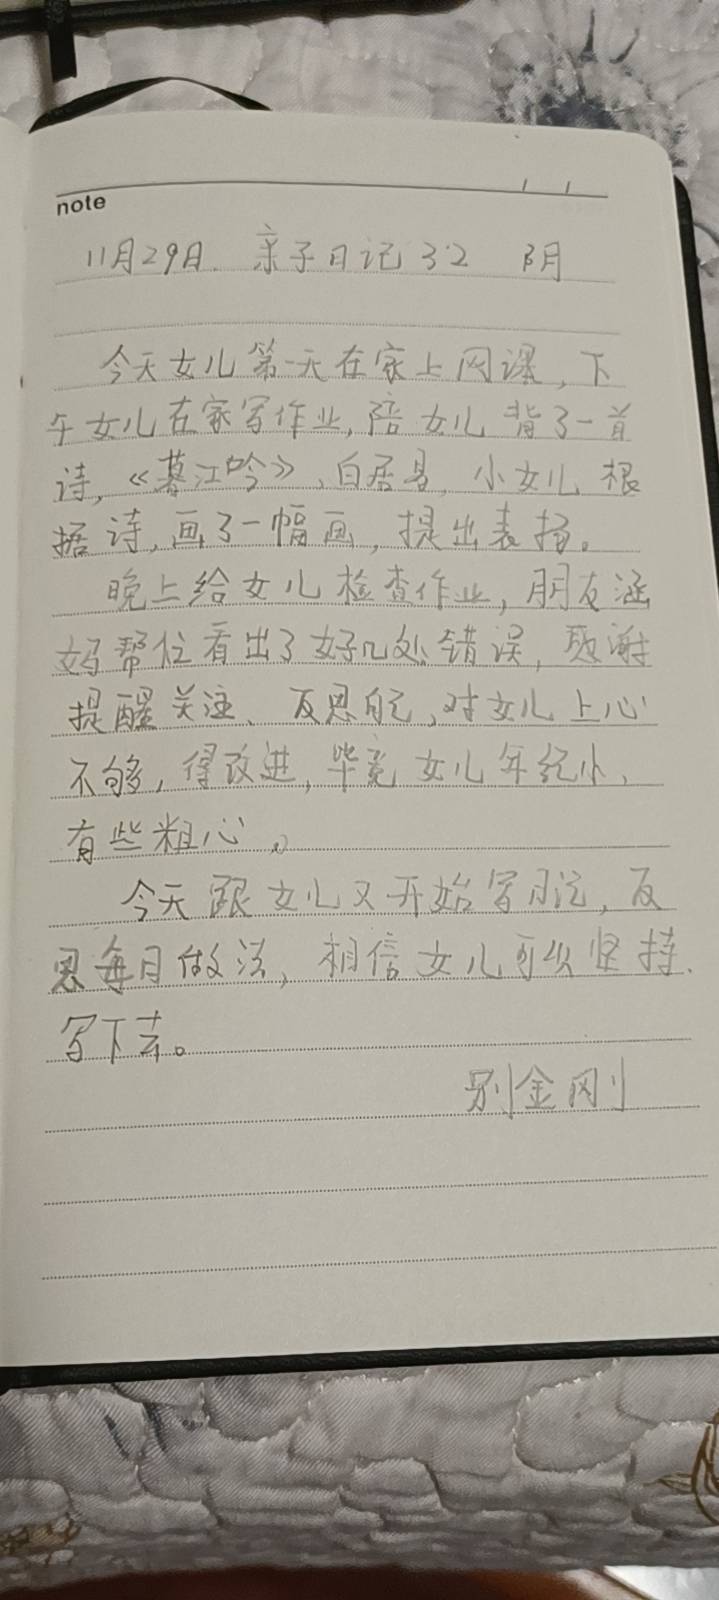 note
11月29日. 亲子日记 32 阴
今天女儿第一天在家上网课,下
午女儿在家写作业,陪女儿背了一首
诗,《暮江吟》、白居易,小女儿根
据诗,画了一幅画,提出表扬。
晚上给女儿检查作业,朋友涵
妈帮忙看出了好几处错误,感谢
提醒关注、反思自己,对女儿上心
不够,得改进,毕竟女儿年纪小、
有些粗心。
今天跟女儿又开始写日记,反
思每日做法,相信女儿可以坚持、
写下去。
别金刚